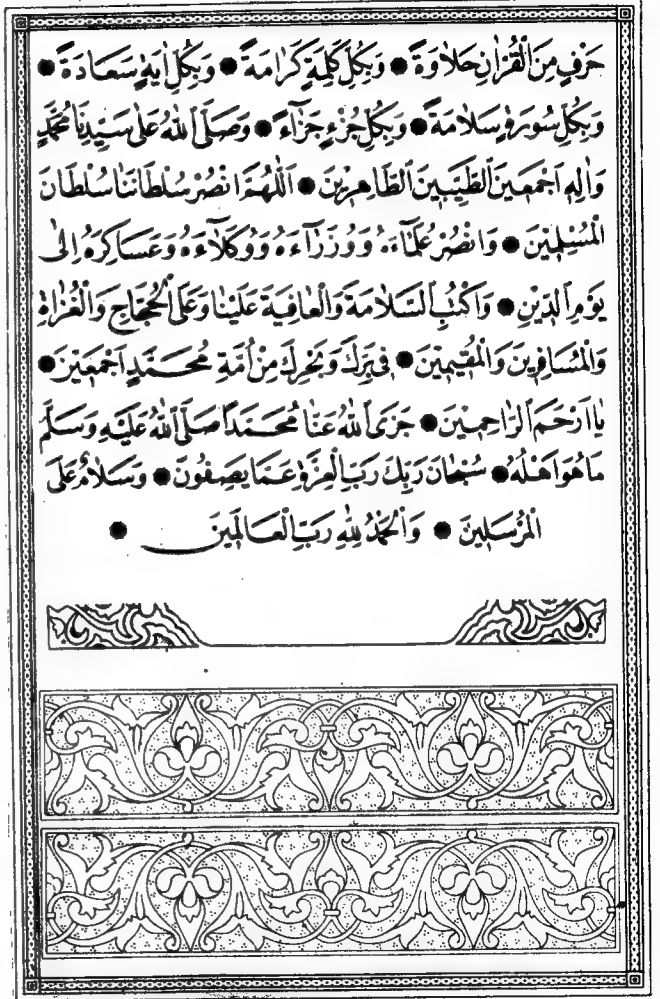 حَرْفٍ مِنَ الْقُرْاٰنِ حَلَاوَةً ● وَبِكُلِّ كَلِمَةٍ كَرَامَةً ● وَبِكُلِّ اٰيَةٍ سَعَادَةً ●
وَبِكُلِّ سُورَةٍ سَلَامَةً ● وَبِكُلِّ جُزْءٍ جَزَٓاءً ● وَصَلَّى اللّٰهُ عَلٰى سَيِّدِنَا مُحَمَّدٍ
وَاٰلِهٖ اَجْمَعِينَ الطَّيِّبِينَ الطَّاهِرِينَ ● اَللّٰهُمَّ انْصُرْ سُلْطَانَنَا سُلْطَانَ
الْمُسْلِمِينَ ● وَانْصُرْ عُلَمَٓاءَهُ وَوُزَرَٓاءَهُ وَوُكَلَٓاءَهُ وَعَسَاكِرَهُ اِلٰى
يَوْمِ الدِّينِ ● وَاكْتُبِ السَّلَامَةَ وَالْعَافِيَةَ عَلَيْنَا وَعَلَى الْحُجَّاجِ وَالْغُزَاةِ
وَالْمُسَافِرِينَ وَالْمُقِيمِينَ ● فِى بَرِّكَ وَبَحْرِكَ مِنْ اُمَّةِ مُحَمَّدٍ اَجْمَعِينَ ●
يَا اَرْحَمَ الرَّاحِمِينَ ● جَزَى اللّٰهُ عَنَّا مُحَمَّدًا صَلَّى اللّٰهُ عَلَيْهِ وَسَلَّمَ
مَا هُوَ اَهْلُهُ ● سُبْحَانَ رَبِّكَ رَبِّ الْعِزَّةِ عَمَّا يَصِفُونَ ● وَسَلَامٌ عَلَى
الْمُرْسَلِينَ ● وَالْحَمْدُ لِلّٰهِ رَبِّ الْعَالَمِينَ ●